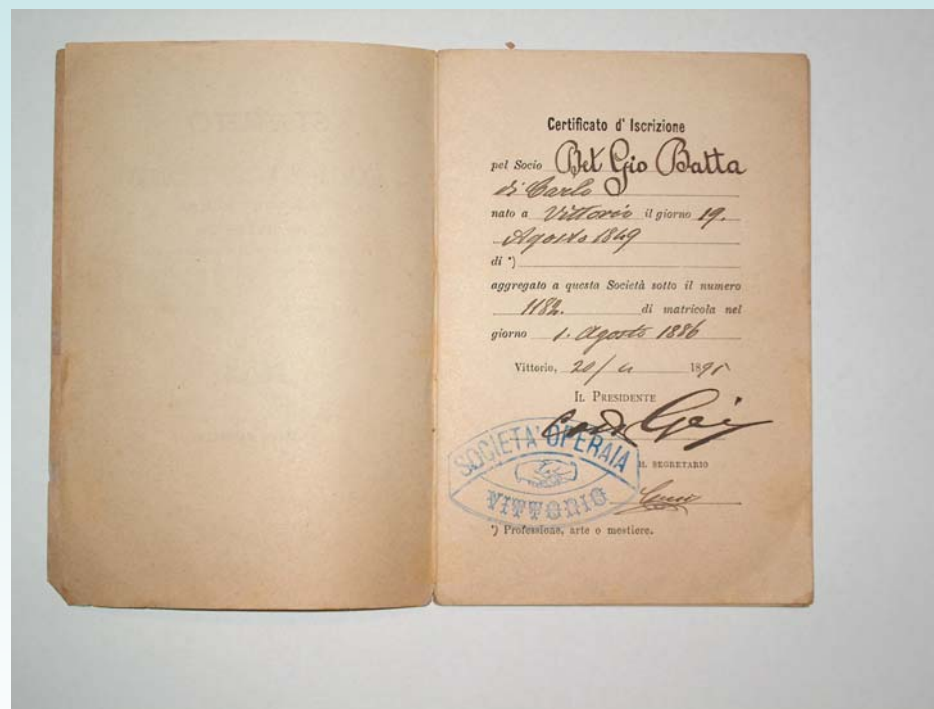 Certificato d' Iscrizione
pel Socio Bet Gio Batta
di Carlo
nato a Vittorio il giorno 19.
Agosto 1849
di *)
aggregato a questa Società sotto il numero
1182. di matricola nel
giorno 1. Agosto 1886
Vittorio, 20/ 1891
IL PRESIDENTE
SOCIETA' OPERAIA
IL SEGRETARIO
VITTORIO
*) Professione, arte o mestiere.